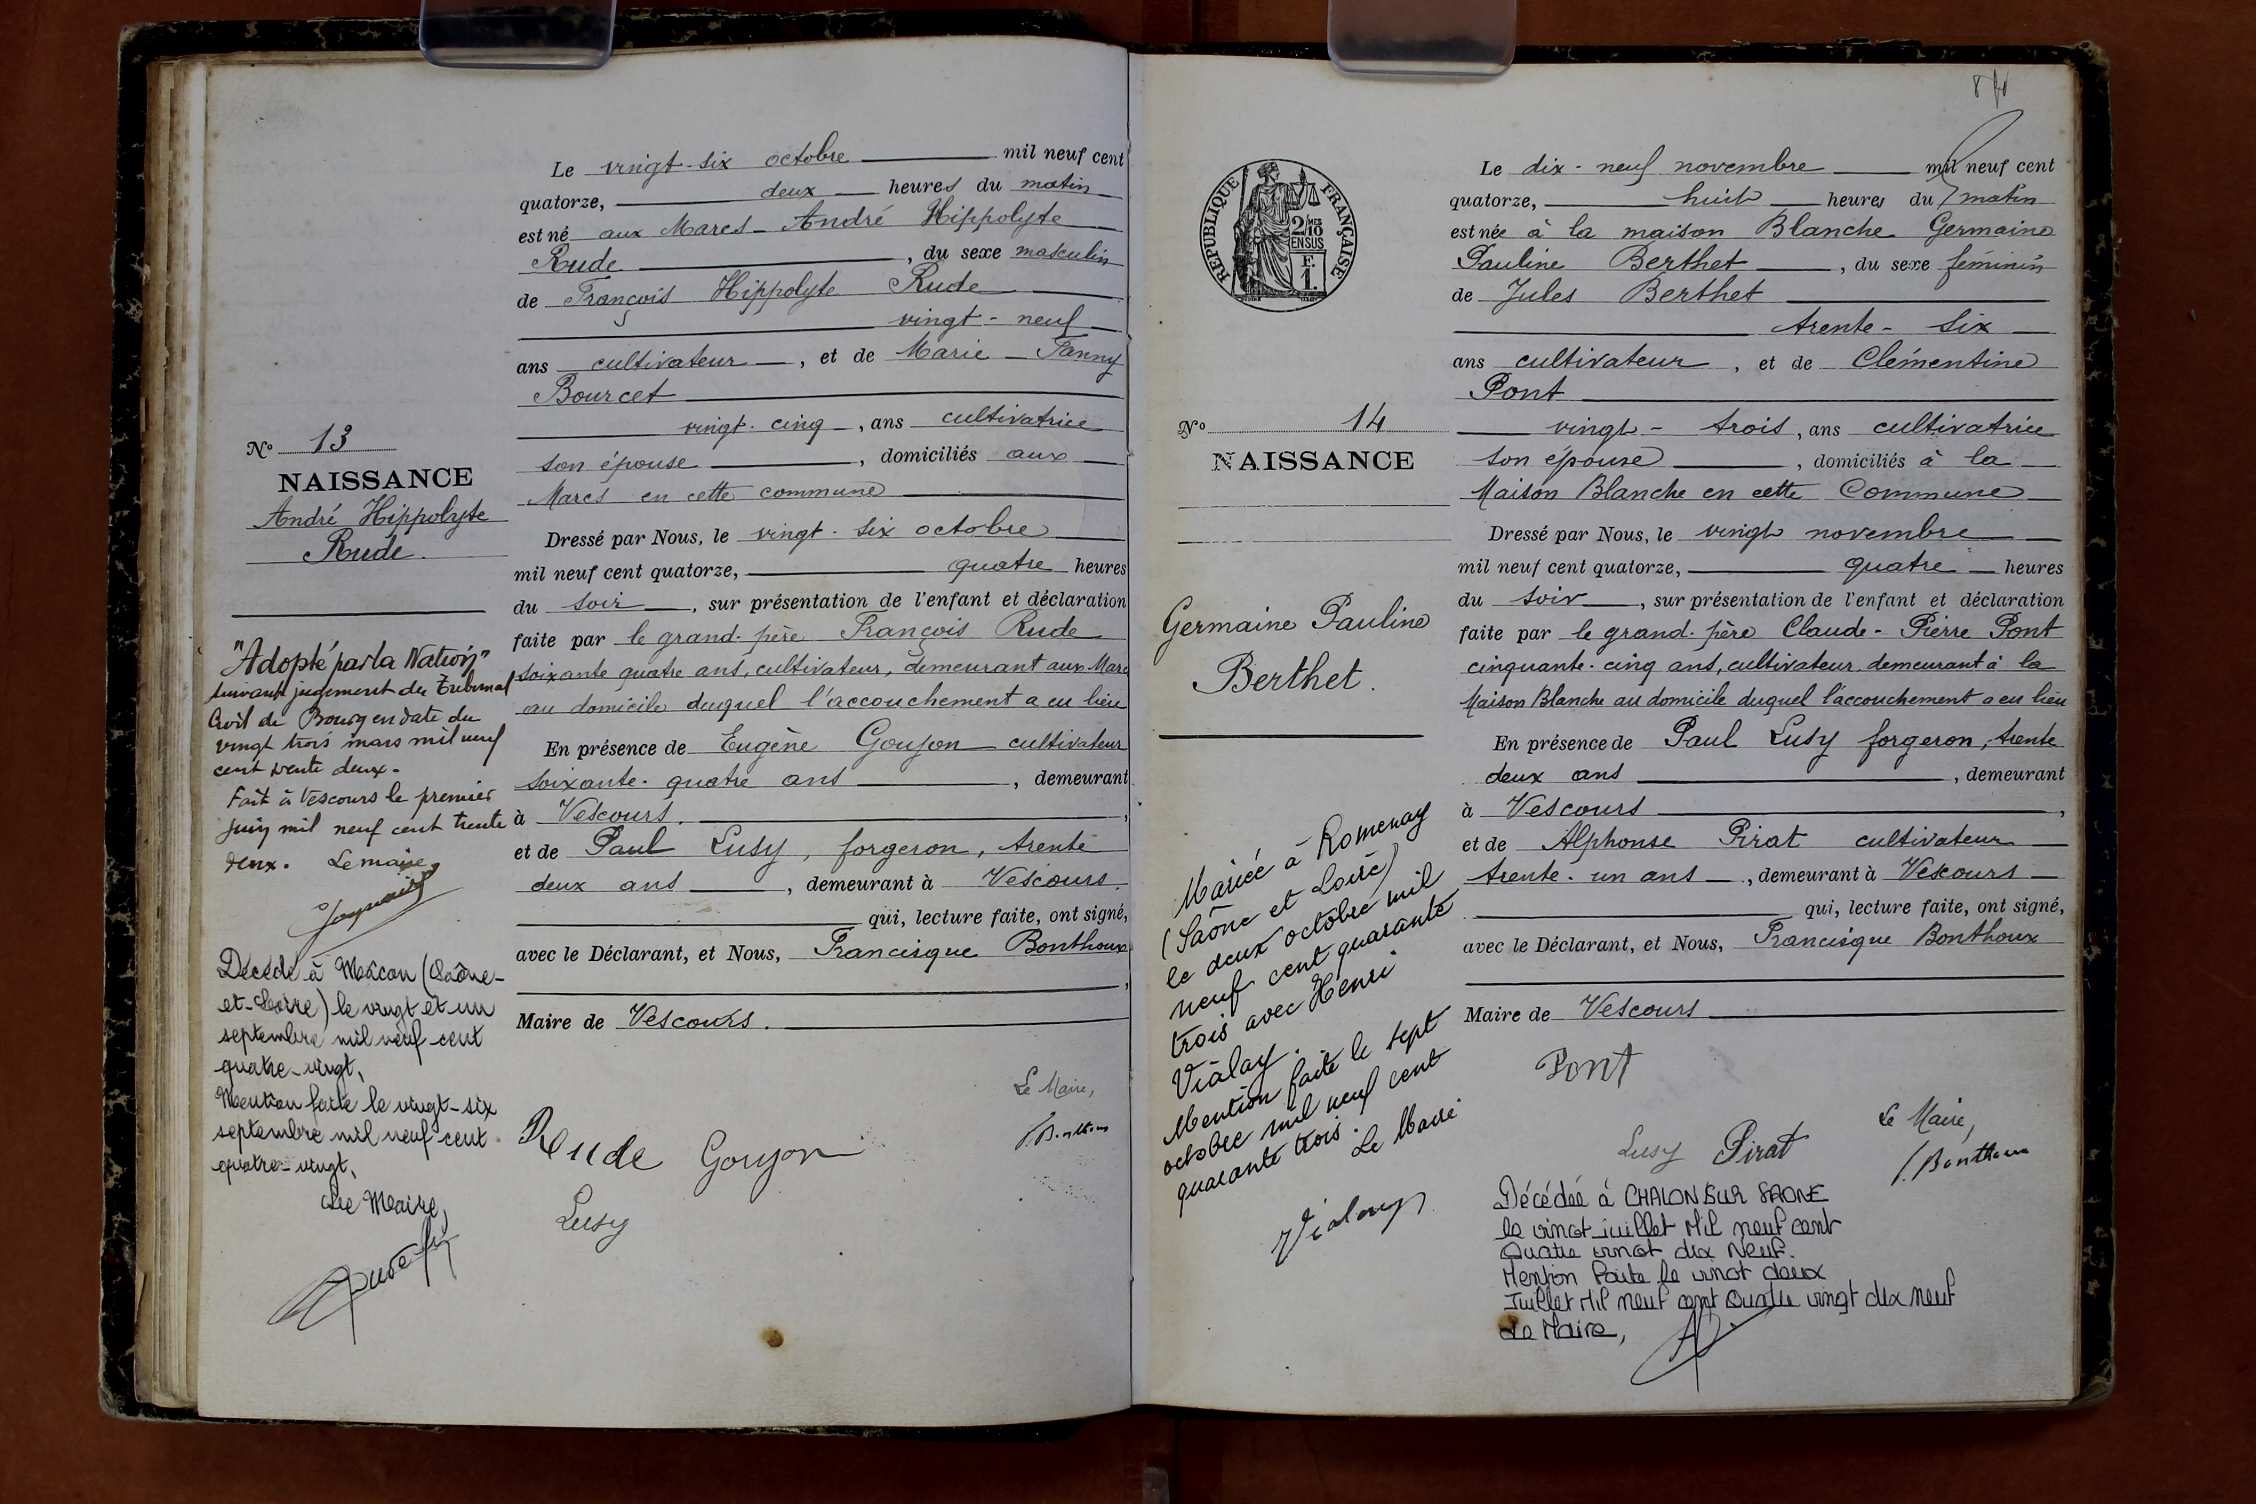 N° 13
NAISSANCE
André Hippolyte
Rude
"Adopté par la Nation"
suivant jugement du Tribunal
Civil de Bourg en date du
vingt trois mars mil neuf
cent trente deux.
Fait à Vescours le premier
juin mil neuf cent trente
deux. Le maire
Décédé à Mâcon (Saône-
et-Loire) le vingt et un
septembre mil neuf cent
quatre-vingt,
Mention faite le vingt-six
septembre mil neuf cent
quatre-vingt,
Le Maire,
Le vingt-six octobre mil neuf cent
quatorze, deux heures du matin
est né aux Marcs André Hippolyte
Rude, du sexe masculin
de François Hippolyte Rude
vingt-neuf
ans cultivateur, et de Marie Fanny
Bourcet
vingt-cinq, ans cultivatrice
son épouse, domiciliés aux
Marcs en cette commune
Dressé par Nous, le vingt-six octobre
mil neuf cent quatorze, quatre heures
du soir, sur présentation de l'enfant et déclaration
faite par le grand-père François Rude
soixante quatre ans, cultivateur, demeurant aux Marcs
au domicile duquel l'accouchement a eu lieu
En présence de Eugène Goujon cultivateur
soixante-quatre ans, demeurant
à Vescours.
et de Paul Lusy, forgeron, trente
deux ans, demeurant à Vescours.
qui, lecture faite, ont signé,
avec le Déclarant, et Nous, Francisque Bonthoux
Maire de Vescours.
Le Maire,
Rude Goujon F. Bonthoux
Lusy
RÉPUBLIQUE FRANÇAISE
2/10 MES
EN SUS
F.
1.
N° 14
NAISSANCE
Germaine Pauline
Berthet.
Mariée à Romenay
(Saône et Loire)
le deux octobre mil
neuf cent quarante
trois avec Henri
Vialay.
Mention faite le sept
octobre mil neuf cent
quarante trois.
Le Maire
Vialay
Le dix-neuf novembre mil neuf cent
quatorze, huit heures du matin
est née à la maison Blanche Germaine
Pauline Berthet, du sexe féminin
de Jules Berthet
trente-six
ans cultivateur, et de Clémentine
Pont
vingt-trois, ans cultivatrice
son épouse, domiciliés à la
Maison Blanche en cette Commune
Dressé par Nous, le vingt novembre
mil neuf cent quatorze, quatre heures
du soir, sur présentation de l'enfant et déclaration
faite par le grand-père Claude-Pierre Pont
cinquante-cinq ans, cultivateur, demeurant à la
Maison Blanche au domicile duquel l'accouchement a eu lieu
En présence de Paul Lusy forgeron, trente
deux ans, demeurant
à Vescours,
et de Alphonse Pirat cultivateur
trente-un ans, demeurant à Vescours
qui, lecture faite, ont signé,
avec le Déclarant, et Nous, Francisque Bonthoux
Maire de Vescours
Pont
Le Maire,
Lusy Pirat F. Bonthoux
Décédée à CHALON SUR SAONE
le vingt juillet Mil neuf cent
Quatre vingt dix Neuf.
Mention faite le vingt deux
Juillet Mil neuf cent Quatre vingt dix neuf
Le Maire,